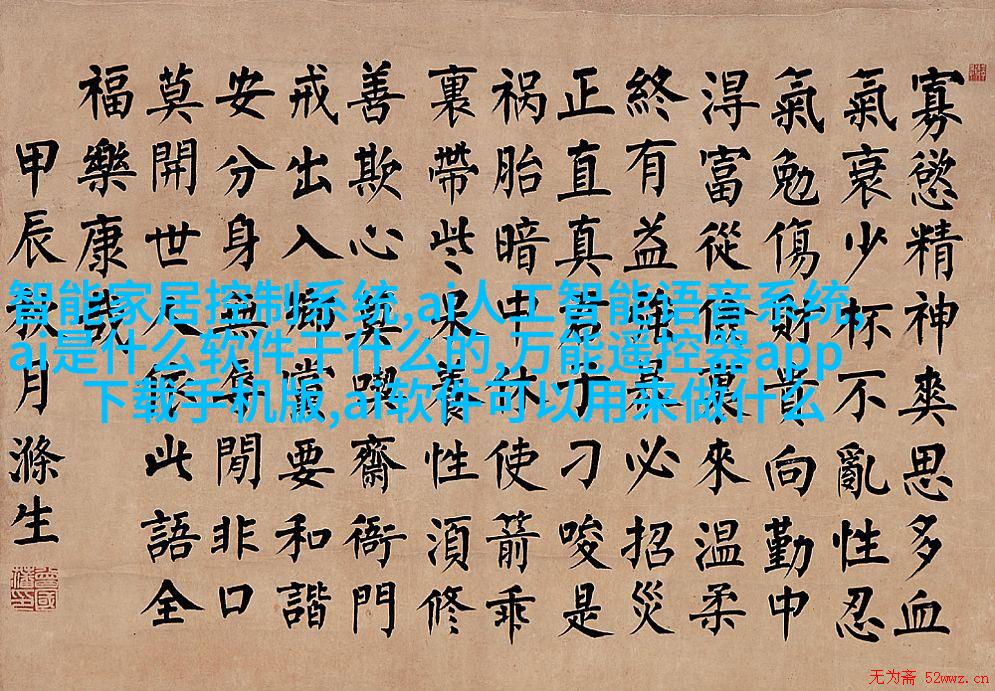 寡慾精神爽思多血
氣衰少杯不亂性忍
氣勉傷財貴向勤中
淂富從儉裏來温柔
終有益必招災
正直真君子刁唆是
祸胎暗中休使箭乖
裏帶些呆養性湏修
善欺心莫喫齋衙門
戒出入要和諧
安分身無辱閒非口
莫開世人依此語全
福樂康哉
甲辰秋月滌生
智能家居控制系统,ai人工智能语音系统,
ai是什么软件干什么的,万能遥控器app
下载手机版,ai软件可以用来做什么
无为斋 52wwz.cn